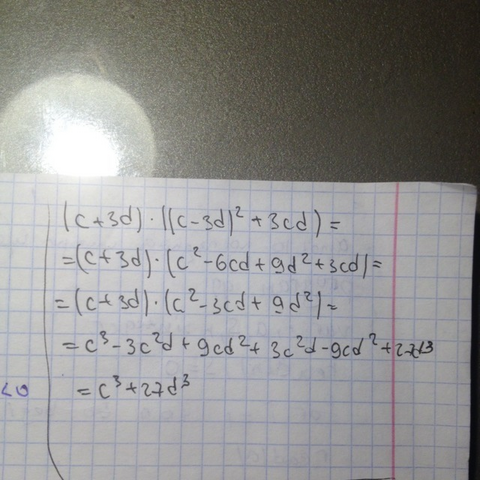 (c+3d)·((c-3d)²+3cd)=
=(c+3d)·(c²-6cd+9d²+3cd)=
=(c+3d)·(c²-3cd+9d²)=
=c³-3c²d+9cd²+3c²d-9cd²+27d³
<0 =c³+27d³